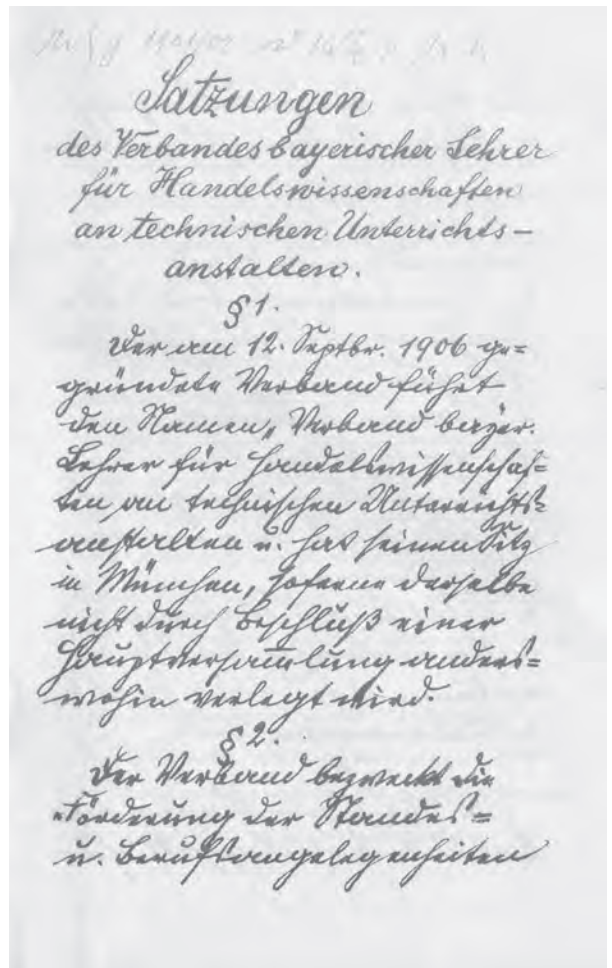 Satzungen
des Verbandes bayerischer Lehrer
für Handelswissenschaften
an technischen Unterrichts-
anstalten.
§ 1.
Der am 12. Septbr. 1906 ge=
gründete Verband führt
den Namen „Verband bayer.
Lehrer für Handelswissenschaf=
ten an technischen Unterrichts=
anstalten u. hat seinen Sitz
in München, soferne derselbe
nicht durch Beschluß einer
Hauptversam̅lung anders=
wohin verlegt wird.
§ 2.
Der Verband bezweckt die
Förderung der Standes=
u. Berufsangelegenheiten